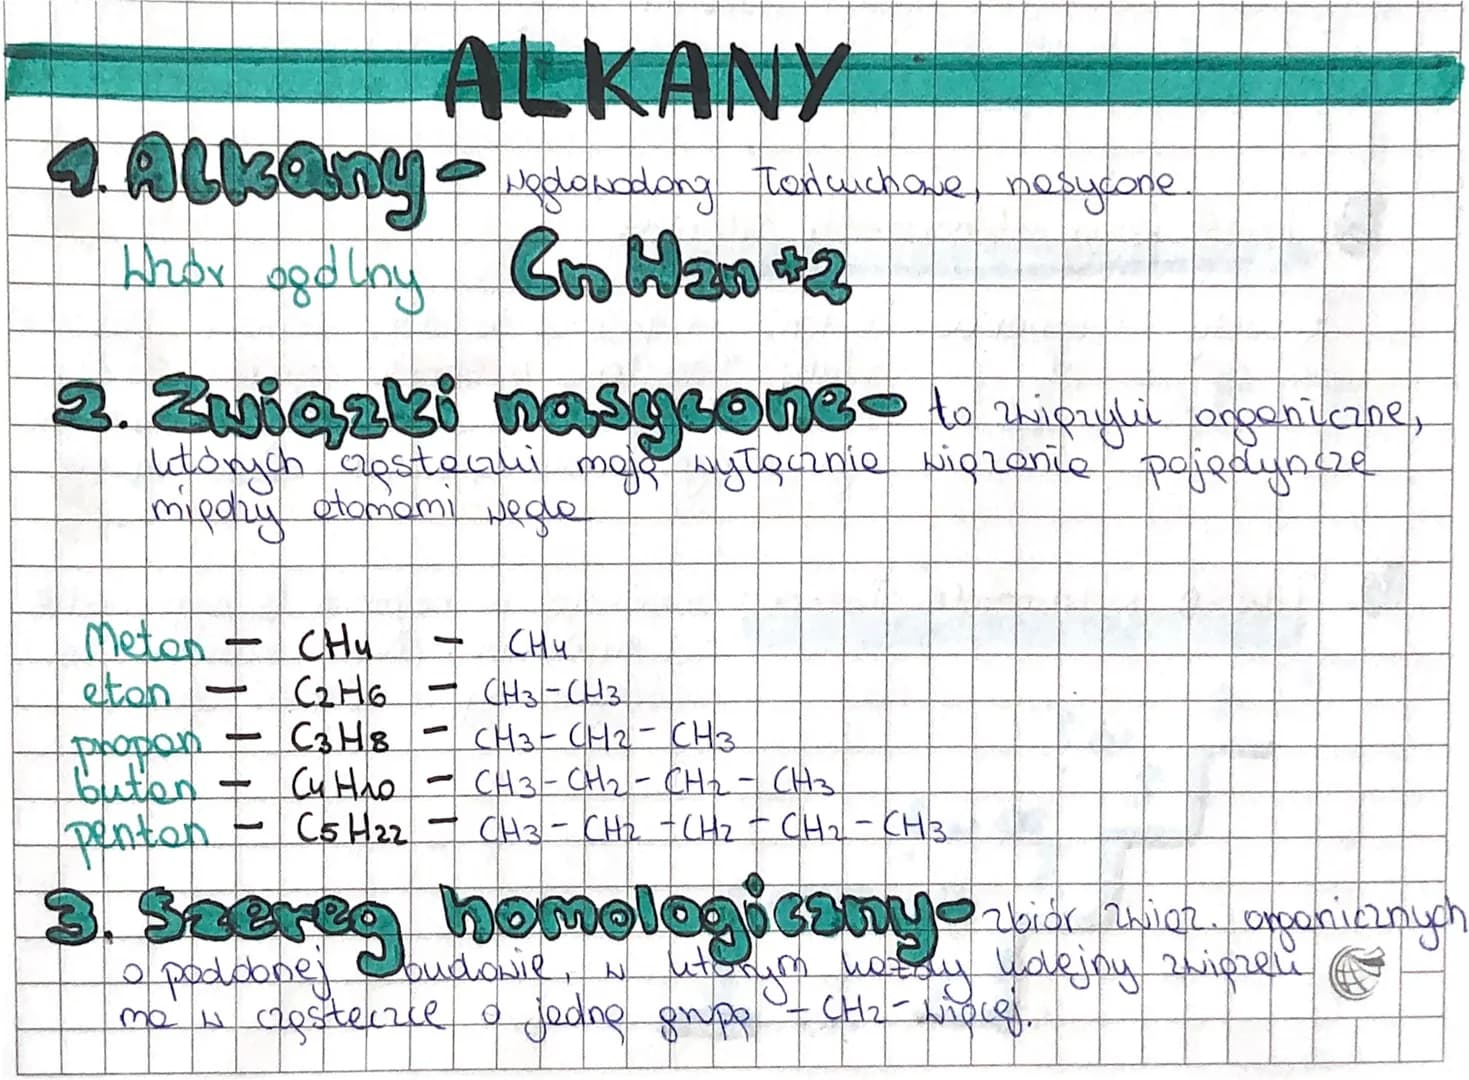 ALKANY
1. Alkany - węglowodory łańcuchowe, nasycone.
Wzór ogólny CnH2n+2
2. Związki nasycone - to związki organiczne,
których cząsteczki mają wyłącznie wiązania pojedyncze
między atomami węgla
Metan - CH4 - CH4
etan - C2H6 - CH3-CH3
propan - C3H8 - CH3-CH2-CH3
butan - C4H10 - CH3-CH2-CH2-CH3
pentan - C5H22 - CH3-CH2-CH2-CH2-CH3
3. Szereg homologiczny - zbiór związ. organicznych
o podobnej budowie, w którym każdy kolejny związek
ma w cząsteczce o jedną grupę -CH2- więcej.